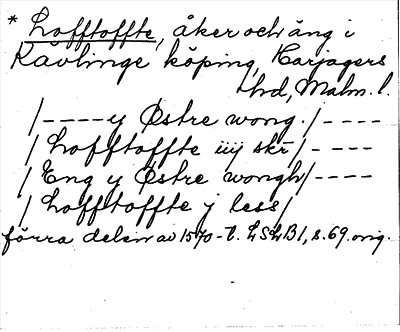 * Lofftoffte, åker och äng i
Kävlinge köping, Harjagers
hd, Malm. l.
/---- y Østre wong./----
/ Lofftoffte iiij skr/----
/ Eng y Østre wongh/----
/ Lofftoffte j less/
förra delen av 1570-t. LSLB1, s. 69. orig.